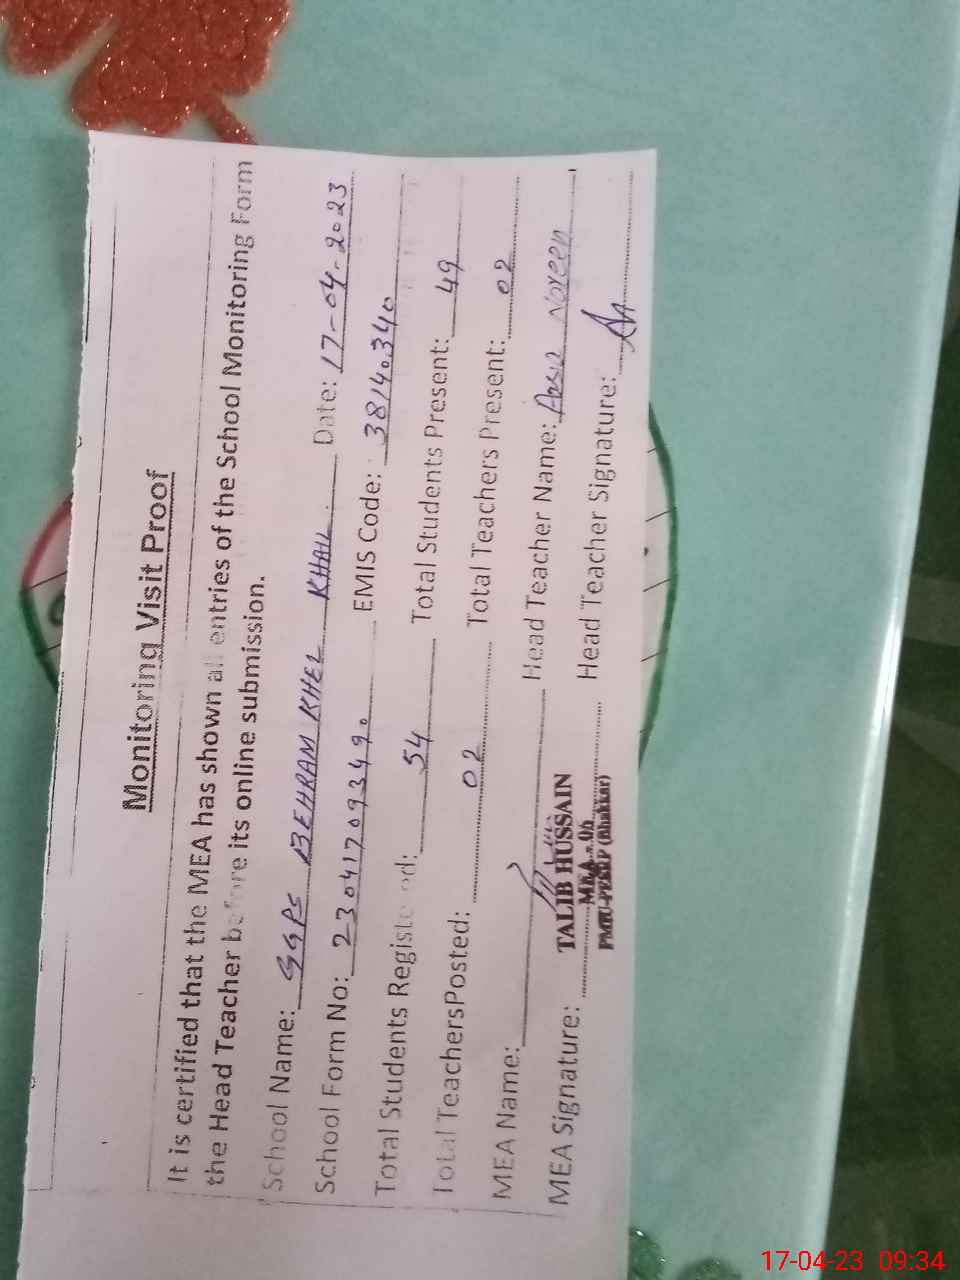 Monitoring Visit Proof
It is certified that the MEA has shown all entries of the School Monitoring Form
the Head Teacher before its online submission.
School Name: GGPS BEHRAM KHEL KHAIL Date: 17-04-2023
School Form No: 23041709349. EMIS Code: 38140340
Total Students Registered: 54 Total Students Present: 49
Total TeachersPosted: 02 Total Teachers Present: 02
MEA Name: Head Teacher Name: Noreen
MEA Signature: Head Teacher Signature:
TALIB HUSSAIN
MEA - 06
PMIU-PESRP (Bhakkar)
17-04-23 09:34